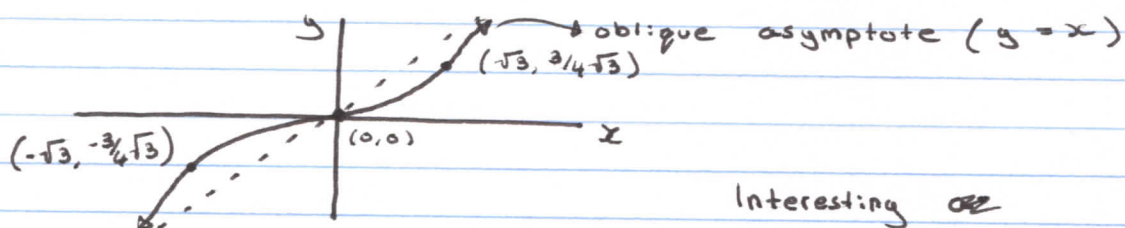 y
oblique asymptote (y = x)
(√3, 3/4√3)
(-√3, -3/4√3)
(0,0)
x
Interesting